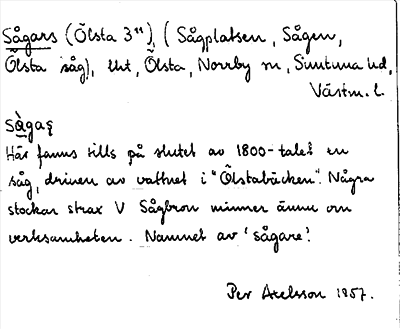 Sågars (Ölsta 3¹¹), (Sågplatsen, Sågen,
Ölsta såg), lht, Ölsta, Norrby sn, Simtuna hd,
Västm. l.
Sågaṣ
Här fanns tills på slutet av 1800-talet en
såg, driven av vattnet i "Ölstabäcken". Några
stockar strax V Sågbron minner ännu om
verksamheten. Namnet av 'sågare'.
Per Axelsson 1957.